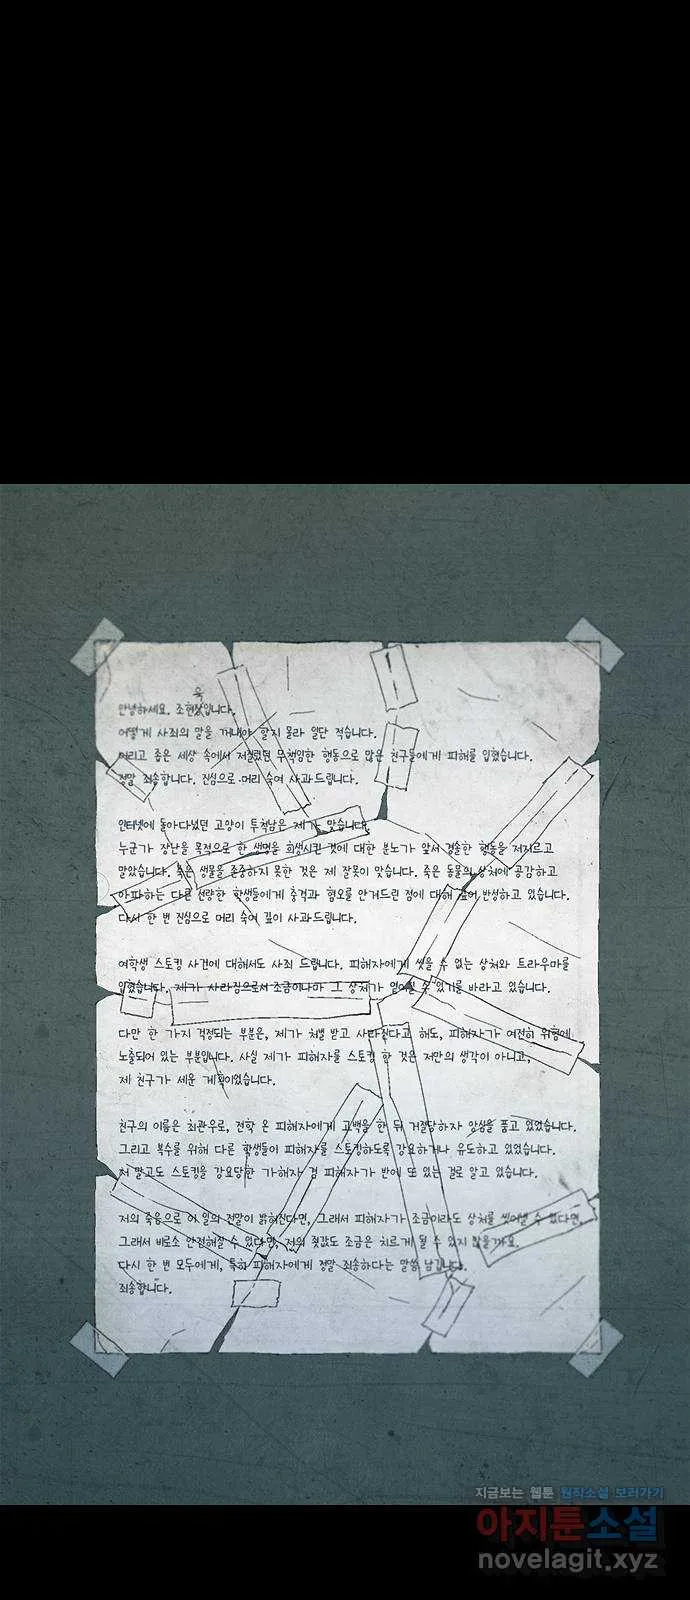 욱
안녕하세요. 조현상입니다.
어떻게 사죄의 말을 꺼내야 할지 몰라 일단 적습니다.
어리고 좁은 세상 속에서 저질렀던 무책임한 행동으로 많은 친구들에게 피해를 입혔습니다.
정말 죄송합니다. 진심으로 머리 숙여 사과드립니다.
인터넷에 돌아다녔던 고양이 투척남은 제가 맞습니다.
누군가 장난을 목적으로 한 생명을 희생시킨 것에 대한 분노가 앞서 경솔한 행동을 저지르고
말았습니다. 죽은 생물을 존중하지 못한 것은 제 잘못이 맞습니다. 죽은 동물의 상처에 공감하고
아파하는 다른 선량한 학생들에게 충격과 혐오를 안겨드린 점에 대해 깊이 반성하고 있습니다.
다시 한 번 진심으로 머리 숙여 깊이 사과드립니다.
여학생 스토킹 사건에 대해서도 사죄 드립니다. 피해자에게 씻을 수 없는 상처와 트라우마를
입혔습니다. 제가 사라짐으로서 조금이나마 그 상처가 수 있기를 바라고 있습니다.
다만 한 가지 걱정되는 부분은, 제가 처벌 받고 사라진다고 해도, 피해자가 여전히 위험에
노출되어 있는 부분입니다. 사실 제가 피해자를 스토킹 한 것은 저만의 생각이 아니고,
제 친구가 세운 계획이었습니다.
친구의 이름은 최관우로, 전학 온 피해자에게 고백을 한 뒤 거절당하자 앙심을 품고 있었습니다.
그리고 복수를 위해 다른 학생들이 피해자를 스토킹하도록 강요하거나 유도하고 있었습니다.
저 말고도 스토킹을 강요당한 가해자 겸 피해자가 반에 또 있는 걸로 알고 있습니다.
저의 죽음으로 이 일의 전말이 밝혀진다면, 그래서 피해자가 조금이라도 상처를 씻어낼 수 있다면,
그래서 비로소 안전해질 수 있다면, 저의 죗값도 조금은 치르게 될 수 있지 않을까요.
다시 한 번 모두에게, 특히 피해자에게 정말 죄송하다는 말씀 남깁니다.
죄송합니다.
지금보는 웹툰 원작소설 보러가기
아지툰소설
novelagit.xyz